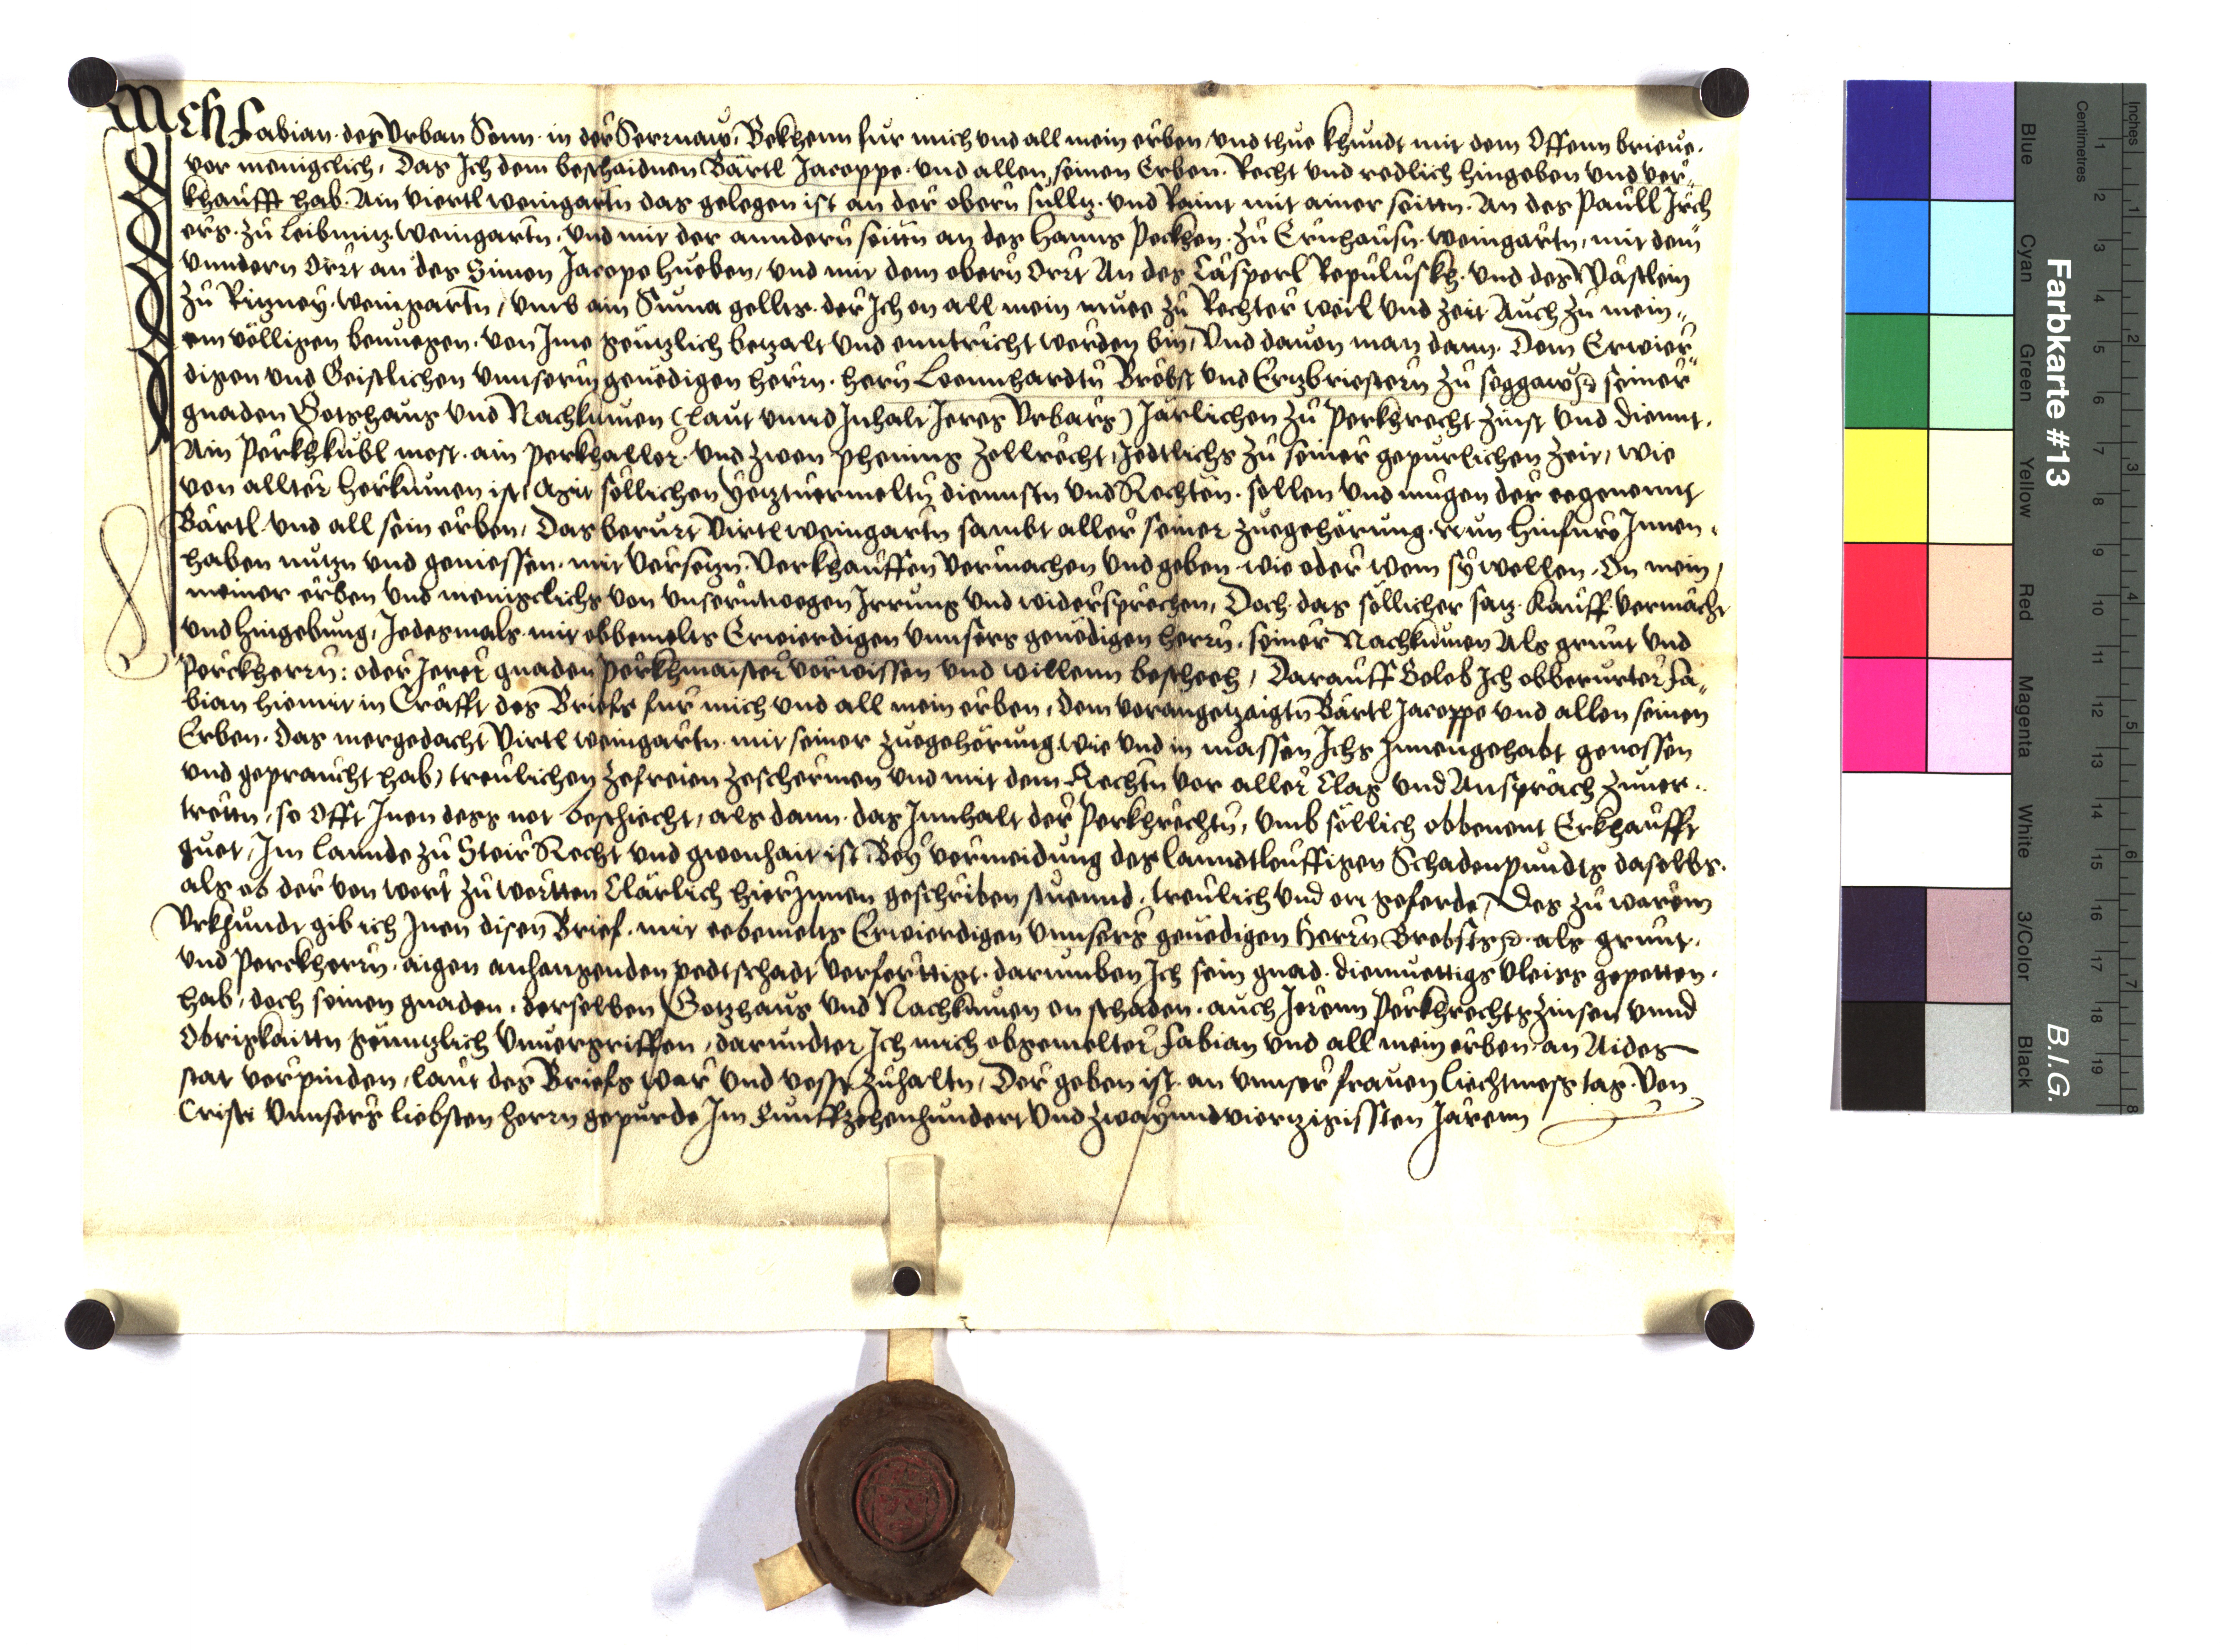 Ich Fabian des Urban Sonn in der Serrnaw, Bekhenn fur mich und all mein erben, und thue khundt mit dem Offenn brieve.
vor menigclich, Das Ich dem beschaidnen Bärtl Jacoppe und allen seinen Erben. Recht und redlich hingeben und ver„
khaufft hab. Ain viertl weingartn das gelegen ist an der obern Sulltz. und Raint mit ainer seittn. An des Paull Irch
ers zu Leibnitz weingartn, und mit der anndern seittn an des Hanns Pecken zu Ernhausn weingartn, mit dem
unndern Ortt an des Simon Jacope hueben, und mit dem obern Ortt An des Casperl Repuluskh. und des Wastlein
zu Ritzney weingartn, umb ain Suma gellts. der Ich on all mein muee zu Rechter weil und zeit Auch zu mein„
em völligen benuegen. von Ime gentzlich betzalt und enntricht worden bin, Und davon man dann. Dem Erwier„
digen und Geistlichen unnserm genedigen herrn. hern Leonnhardtn Brobst und Ertzbriestern zu Seggaw etc seiner
gnaden Gotshaus und Nachkumen (laut unnd Inhalt Ieres Urbars) Järlichen zu Perkhrecht zinst und diennt.
Ain Perkhkubl most. ain perkhaller. und zwen phening zellrecht, Jedtlichs zu seiner gepurlichen zeit, wie
von allter herkumen ist, Mit söllichen yetztvermeltn diennstn und Rechten. sollen und mugen der eegenennt
Bärtl und all sein erben, Das berurt Virtl weingartn sambt aller seiner zuegehörung. nun hinfuro Innen.
haben nutzn und geniessen. mit versetzn. verkhauffen vermachen und geben. wie oder wem sy wellen. On mein,
meiner erben und menigclichs von unserntwegen Irrung und widersprechen, Doch das söllicher satz. Kauff. vermächt
und hingebung, Jedesmals mit obbemelts Erwierdigen unnsers genedigen herrn. seiner Nachkumen Als grunt und
Perckherrn: oder Ierer gnaden perkhmaister vorwissen und willenn bescheeh, Darauff Gelob Ich obberurter Fa„
bian hiemit in Crafft des Briefs fur mich und all mein erben, dem vorangetzaigtn Bärtl Jacoppe und allen seinen
Erben. das mergedacht Virtl weingartn. mit seiner zuegehörung wie und in massen Ichs Innengehabt genossen
und gepraucht hab, treulichen zefreien zeschermen und mit dem Rechtn vor aller Clag und Ansprach zuver„
trettn, so Offt Inen dess not beschiecht, als dann das Innhalt der Perkhrechtn, umb söllich obbenent Erkhaufft
guet, Im Lannde zu Steir Recht und gwonhait ist, Bey vermeidung des lanndtleuffigen Schadenpundts daselbs.
als ob der von wort zu wortten Clärlich hierInnen geschriben stuennd, treulich und on geferde, Des zu warem
Urkhundt gib ich Inen disen Brief. mit eebemelts Erwierdigen unnsers genedigen Herrn Brobsts etc. als grunt.
und Perckherrn. aigen anhangenden pedtschadt verferttigt. darumben Ich sein gnad. diemuettigs vleiss gepetten.
hab, doch seinen gnaden. derselben Gotzhaus und Nachkumen on schaden. auch Ierenn Perkhrechts zinsen unnd
Obrigkaittn genntzlich Unvergriffen, darundter Ich mich obgemelter Fabian und all mein erben an Aides
stat verpinden, laut des Briefs war und vesst zuhaltn, Der geben ist. an unnser frauen liechtmess tag. Von
Cristi unnsers liebsten herrn gepurde Im Funffzehenhundert und zwayundviertzigissten Jarenn
Farbkarte #13
B.I.G.
Blue
Cyan
Green
Yellow
Red
Magenta
White
3/Color
Black
Inches
Centimetres
1 2 3 4 5 6 7 8 9 10 11 12 13 14 15 16 17 18 19
1 2 3 4 5 6 7 8